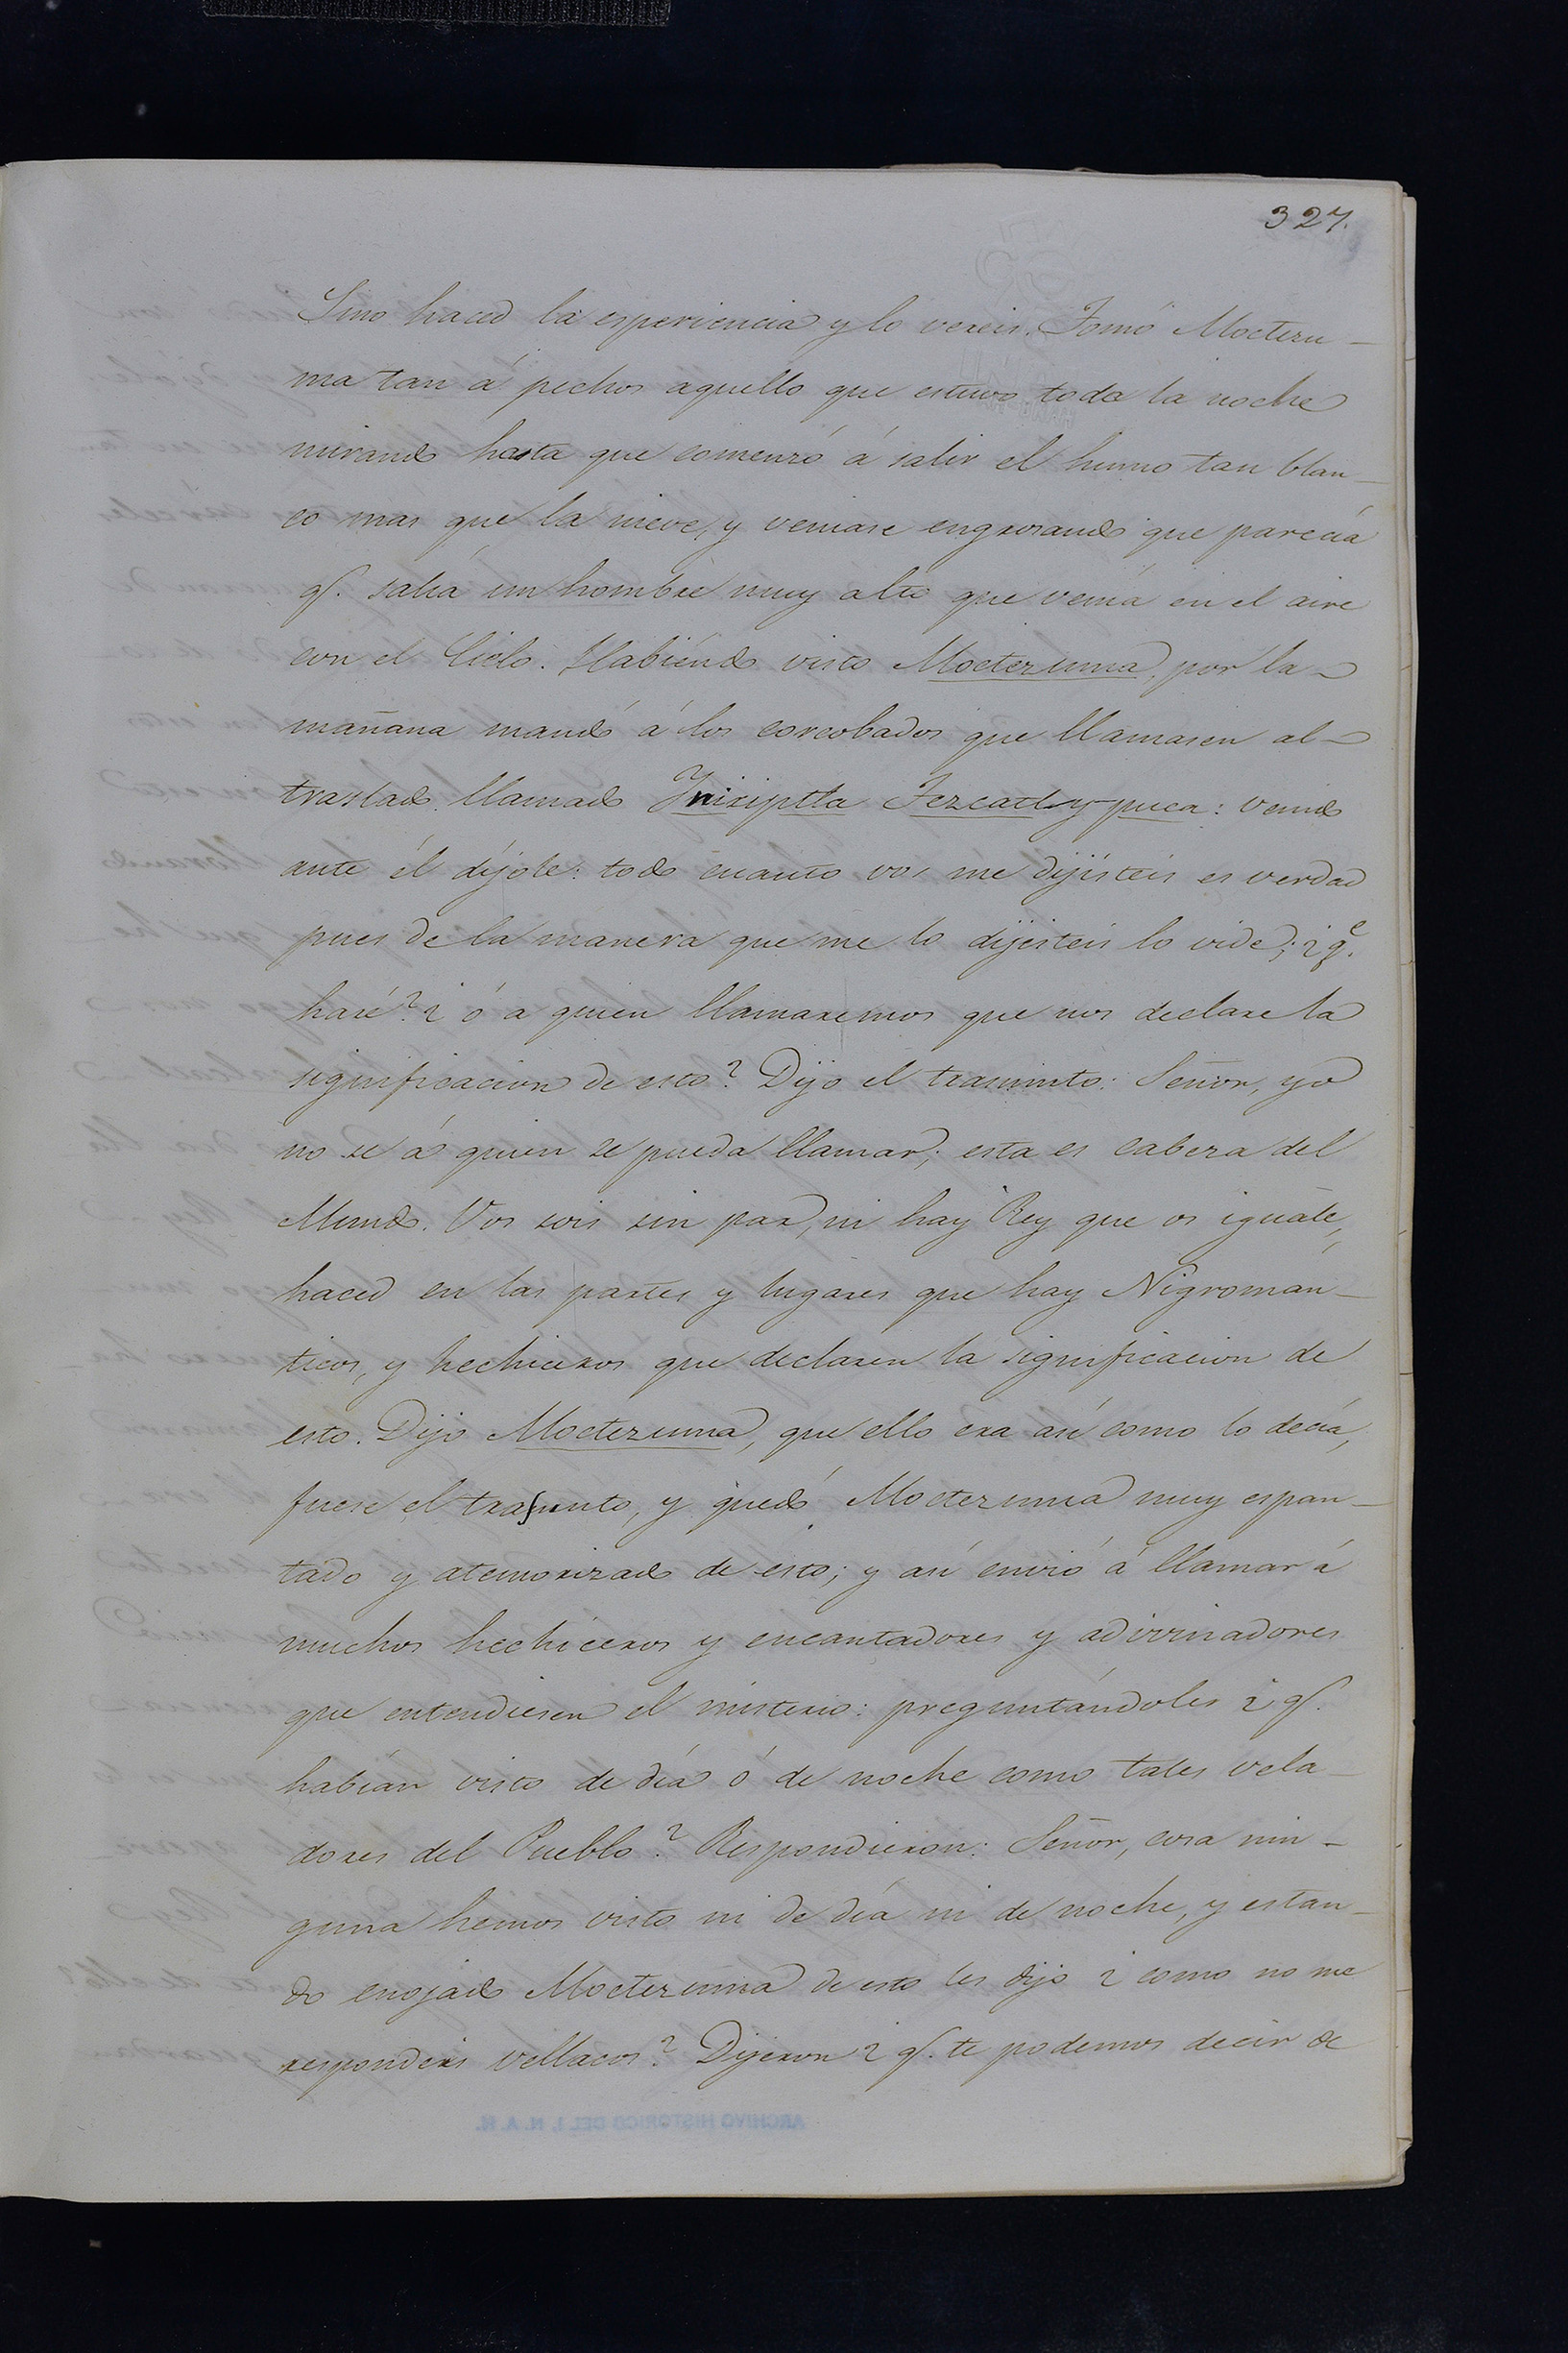 327.
Sino haced la esperiencia y lo vereis. Tomó Moctezu-
ma tan á pechos aquello que estuvo toda la noche
mirando hasta que comenzó á salir el humo tan blan-
co mas que la nieve, y veniase engrosando que parecía
q. salía un hombre muy alto que venía en el aire
con el Cielo. Habiendo visto Moctezuma, por la
mañana mandó á los corcobados que llamasen al
traslado llamado Ynixiptla Tezcatlypuca: venido
ante él díjole: todo cuanto vos me dijísteis es verdad
pues de la manera que me lo dijisteis lo vide; ¿q.e
haré? ¿ó a quien llamaremos que nos declare la
significacion de esto? Dijo el trasunto: Señor, yo
no se á quien se pueda llamar; esta es cabeza del
Mundo. Vos sois sin par, ni hay Rey que os iguale,
haced en las partes y lugares que hay Nigromán-
ticos, y hechiceros que declaren la significacion de
esto. Dijo Moctezuma, que ello era así como lo decía,
fuese el trasunto, y quedó Moctezuma muy espan-
tado y atemorizado de esto; y así envió á llamar á
muchos hechiceros y encantadores y adivinadores
que entendiesen el misterio: preguntándoles ¿q.
habían visto de día ó de noche como tales vela-
dores del Pueblo? Respondieron: Señor, cosa nin-
guna hemos visto ni de día ni de noche, y estan-
do enojado Moctezuma de esto les dijo ¿como no me
respondeis vellacos? Dijeron ¿q. te podemos decir de
ARCHIVO HISTORICO DEL I. N. A. H.